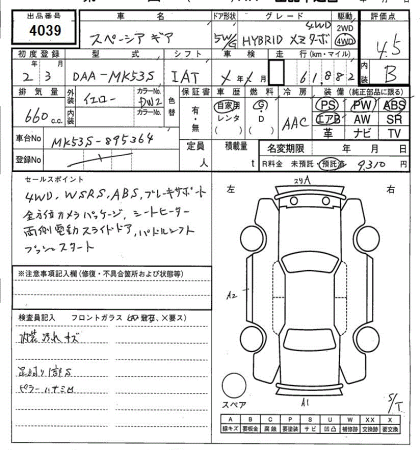 出品番号 車名 ドア形状 グレード 駆動 評価点
4039 スペーシア ギア 5 W/G HYBRID XZターボ 4WD 2WD 4WD 4.5
初度登録 型式 シフト 車検 走行(km・マイル) 内装
2年 3月 DAA-MK53S IAT 61,882 B
排気量 外装 イエロー カラーNo. DW2 色替 保証書 車歴 燃料 冷房 装備(純正部品に限る)
660 c.c. 内装 カラーNo. 有・無 自家用 レンタ G D AAC PS PW ABS
エアB AW SR
革 ナビ TV
車台No MK53S-895364 定員 人 積載量 t 名変期限 年 月 日
登録No. R料金 未預託・預託 9,310 円
セールスポイント
4WD、WSRS、ABS、ブレーキサポート
全方位カメラパッケージ、シートヒーター
両側電動スライドドア、パドルシフト
プッシュスタート
※注意事項記入欄(修復・不具合箇所および状態等)
検査員記入 フロントガラス
内装汚れキズ
ピラー
左 右
A2
スペア A1 S/T
A B C P S U W X XX
線キズ 要板金 腐蝕 要塗装 サビ 凹凸 補修跡 交換跡 要交換